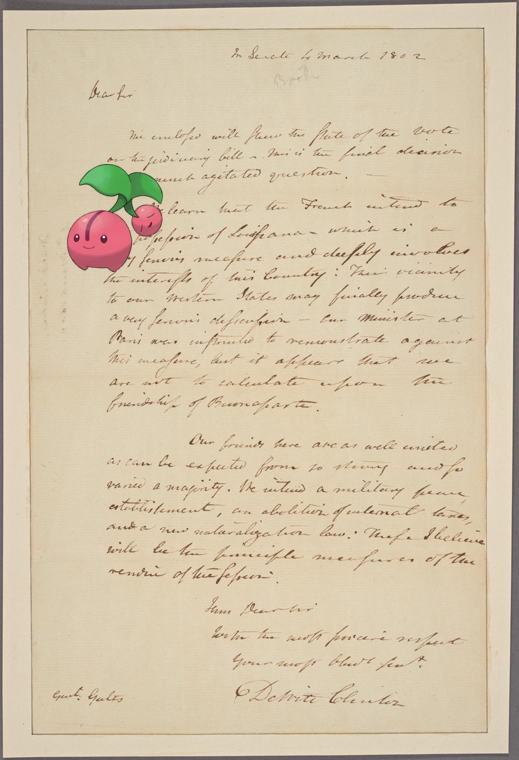 In Senate 4 March 1802
Dear Sir
The enclosed will shew the state of the vote
on the judiciary bill - This is the final decision
much agitated question. —
learn that the French intend to
possession of Louisiana - which is a
serious measure and deeply involves
the interests of this Country: Their vicinity
to our Western States may finally produce
a very serious discussion - our Minister at
Paris was instructed to remonstrate against
this measure, but it appears that we
are not to calculate upon the
friendship of Buonaparte.
Our friends here are as well united
as can be expected from so strong and so
varied a majority. We intend a military peace
establishment, an abolition of internal taxes,
and a new naturalization law: These I believe
will be the principle measures of the
residue of the Session.
I am Dear Sir
With the most sincere respect
Your most Obedt Servt.
DeWitt Clinton
Genl. Gates